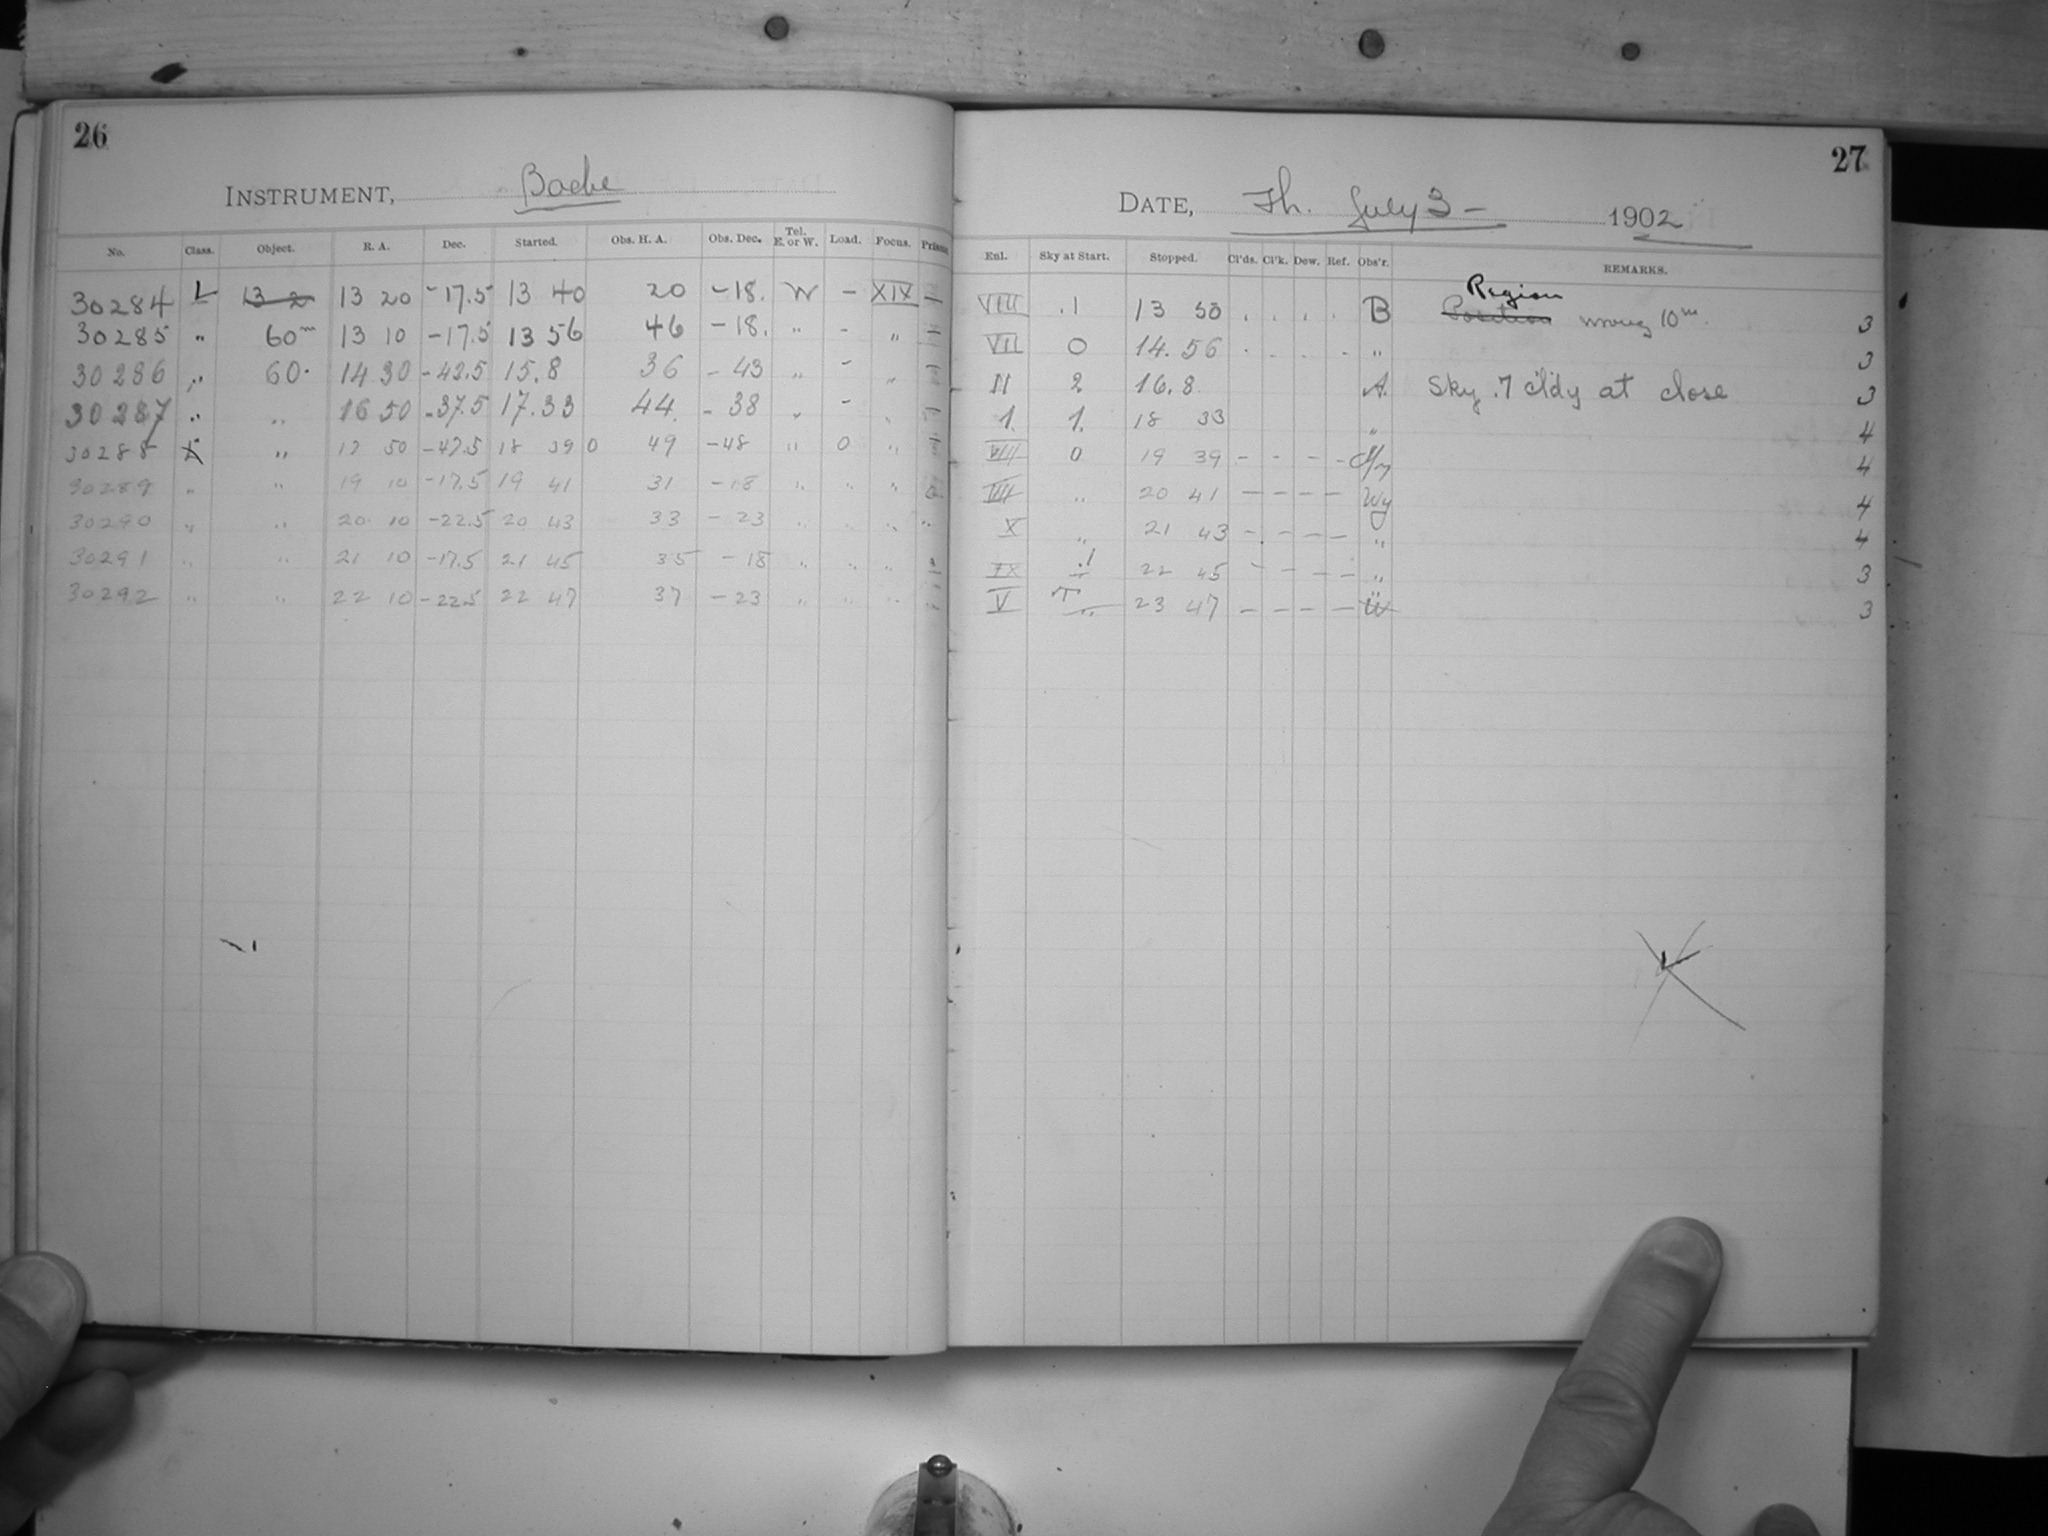 26
INSTRUMENT, Bache
No. Class. Object. R. A. Dec. Started. Obs. H. A. Obs. Dec. Tel. E. or W. Load. Focus. Prisms
30284 L 13 2 13 20 -17.5 13 40 20 -18. W - XIX
30285 " 60m 13 10 -17.5 13 56 46 -18. " - "
30286 " 60. 14 30 -42.5 15.8 36 -43 " - "
30287 " " 16 50 -37.5 17.33 44. -38 " - "
30288 " 17 50 -47.5 18 39 0 49 -48 " 0 "
30289 " " 19 10 -17.5 19 41 31 -18 " " "
30290 " " 20 10 -22.5 20 43 33 -23 " " " "
30291 " " 21 10 -17.5 21 45 35 -18 " " "
30292 " " 22 10 -22.5 22 47 37 -23 " " "
27
DATE, Th. July 3- 1902
Enl. Sky at Start. Stopped. Cl'ds. Cl'k. Dew. Ref. Obs'r. REMARKS.
VIII .1 13 50 . . . . B Position Region wrong 10m. 3
VII 0 14.56 . . . - " 3
II 2 16.8. A. Sky .7 cl'dy at close 3
1. 1. 18 33 " 4
VIII 0 19 39 - - - - 4
VIII " 20 41 - - - - Wy 4
X " 21 43 - - - - " 4
IX .1 22 45 - - - - " 3
V " 23 47 - - - - 3